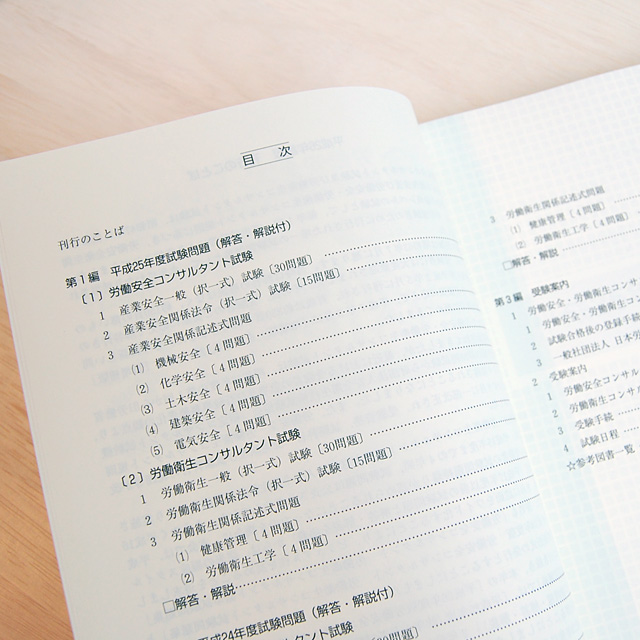 目 次
刊行のことば
第1編 平成25年度試験問題（解答・解説付）
〔1〕労働安全コンサルタント試験
1 産業安全一般（択一式）試験〔30問題〕
2 産業安全関係法令（択一式）試験〔15問題〕
3 産業安全関係記述式問題
(1) 機械安全〔4問題〕
(2) 化学安全〔4問題〕
(3) 土木安全〔4問題〕
(4) 建築安全〔4問題〕
(5) 電気安全〔4問題〕
〔2〕労働衛生コンサルタント試験
1 労働衛生一般（択一式）試験〔30問題〕
2 労働衛生関係法令（択一式）試験〔15問題〕
3 労働衛生関係記述式問題
(1) 健康管理〔4問題〕
(2) 労働衛生工学〔4問題〕
□解答・解説
平成24年度試験問題（解答・解説付）
コンサルタント試験
〔30問題〕
3 労働衛生関係記述式問題
(1) 健康管理〔4問題〕
(2) 労働衛生工学〔4問題〕
□解答・解説
第3編 受験案内
1 労働安全・労働衛生コンサ
1 労働安全・労働衛生コン
2 試験合格後の登録手続
3 一般社団法人 日本労
2 受験案内
1 労働安全コンサル
2 労働衛生コンサ
3 受験手続
4 試験日程
☆参考図書一覧